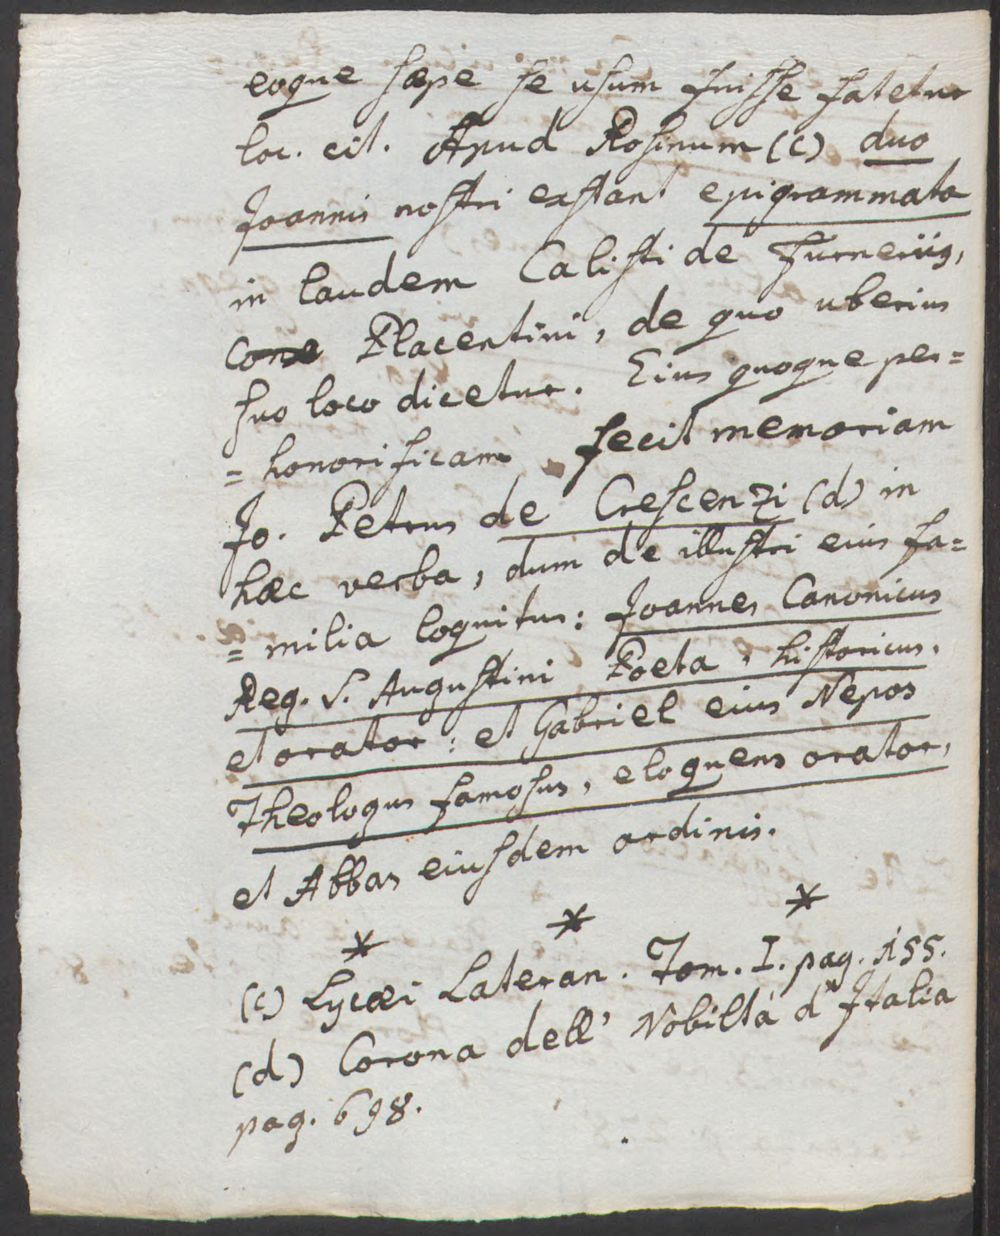 eoque sæpe se usum fuisse fatetur
loc. cit. Apud Rosinum (c) duo
Joannis nostri exstant epigrammata
in laudem Calisti de Furneriis,
Placentini, de quo uberius
suo loco dicetur. Eius quoque per=
= honorificam fecit memoriam
Jo. Petrus de Crescenzi (d) in
hæc verba, dum de illustri eius fa=
= milia loquitur: Joannes Canonicus
Reg. S. Augustini Poeta, historicus,
et orator: et Gabriel eius Nepos
Theologus famosus, eloquens orator,
et Abbas eiusdem ordinis.
* * *
(c) Lycæi Lateran. Tom. I. pag. 155.
(d) Corona dell' Nobiltà d'Italia
pag. 698.